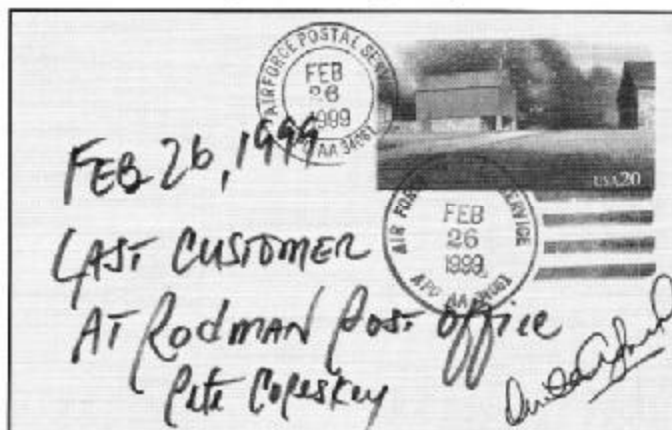 AIR FORCE POSTAL SERVICE
FEB
26
1999
AA 34061
USA20
AIR FORCE SERVICE
FEB
26
1999
APO AA 34061
FEB 26, 1999
LAST CUSTOMER
AT RODMAN POST OFFICE
Pete